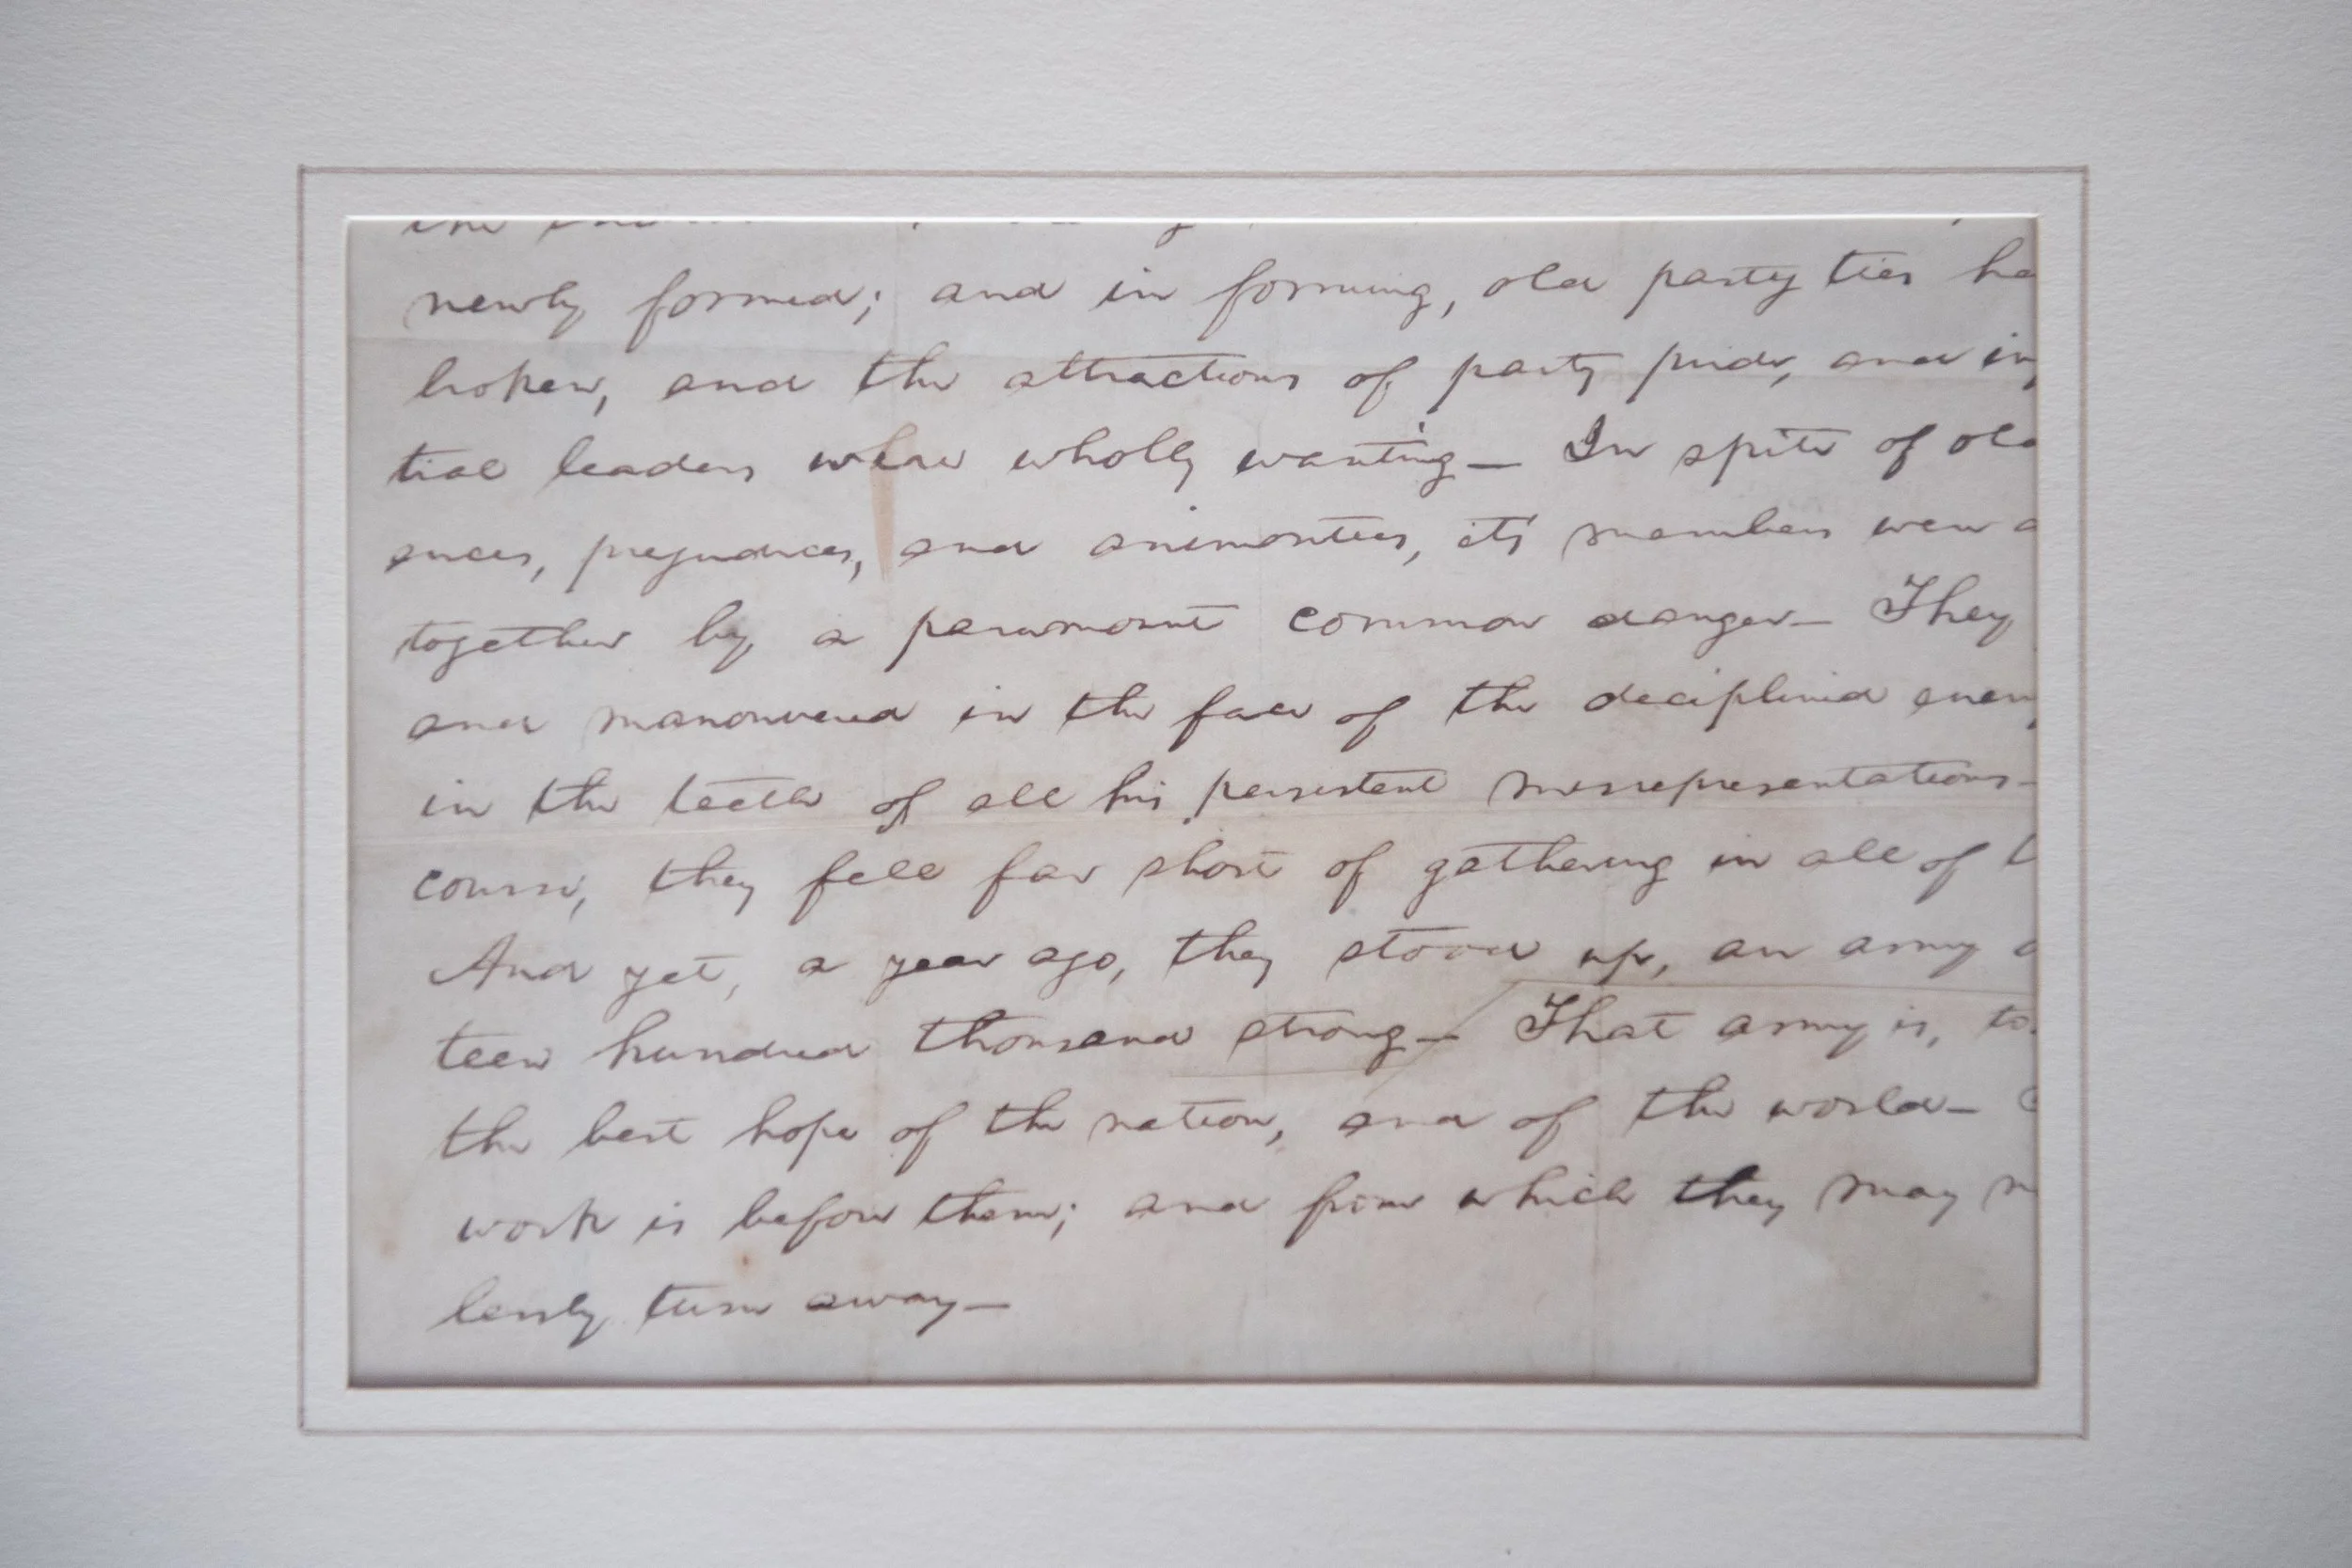 newly formed; and in forming, old party ties ha
broken, and the attractions of party pride, and in
tial leaders were wholly wanting— In spite of old
ences, prejudices, and animosities, it's members were d
together by a paramount common danger— They
and manouvered in the face of the deciplined enem
in the teeth of all his persistent misrepresentations—
course, they fell far short of gathering in all of t
And yet, a year ago, they stood up, an army o
teen hundred thousand strong— That army is, to
the best hope of the nation, and of the world—
work is before them; and from which they may n
lessly turn away—